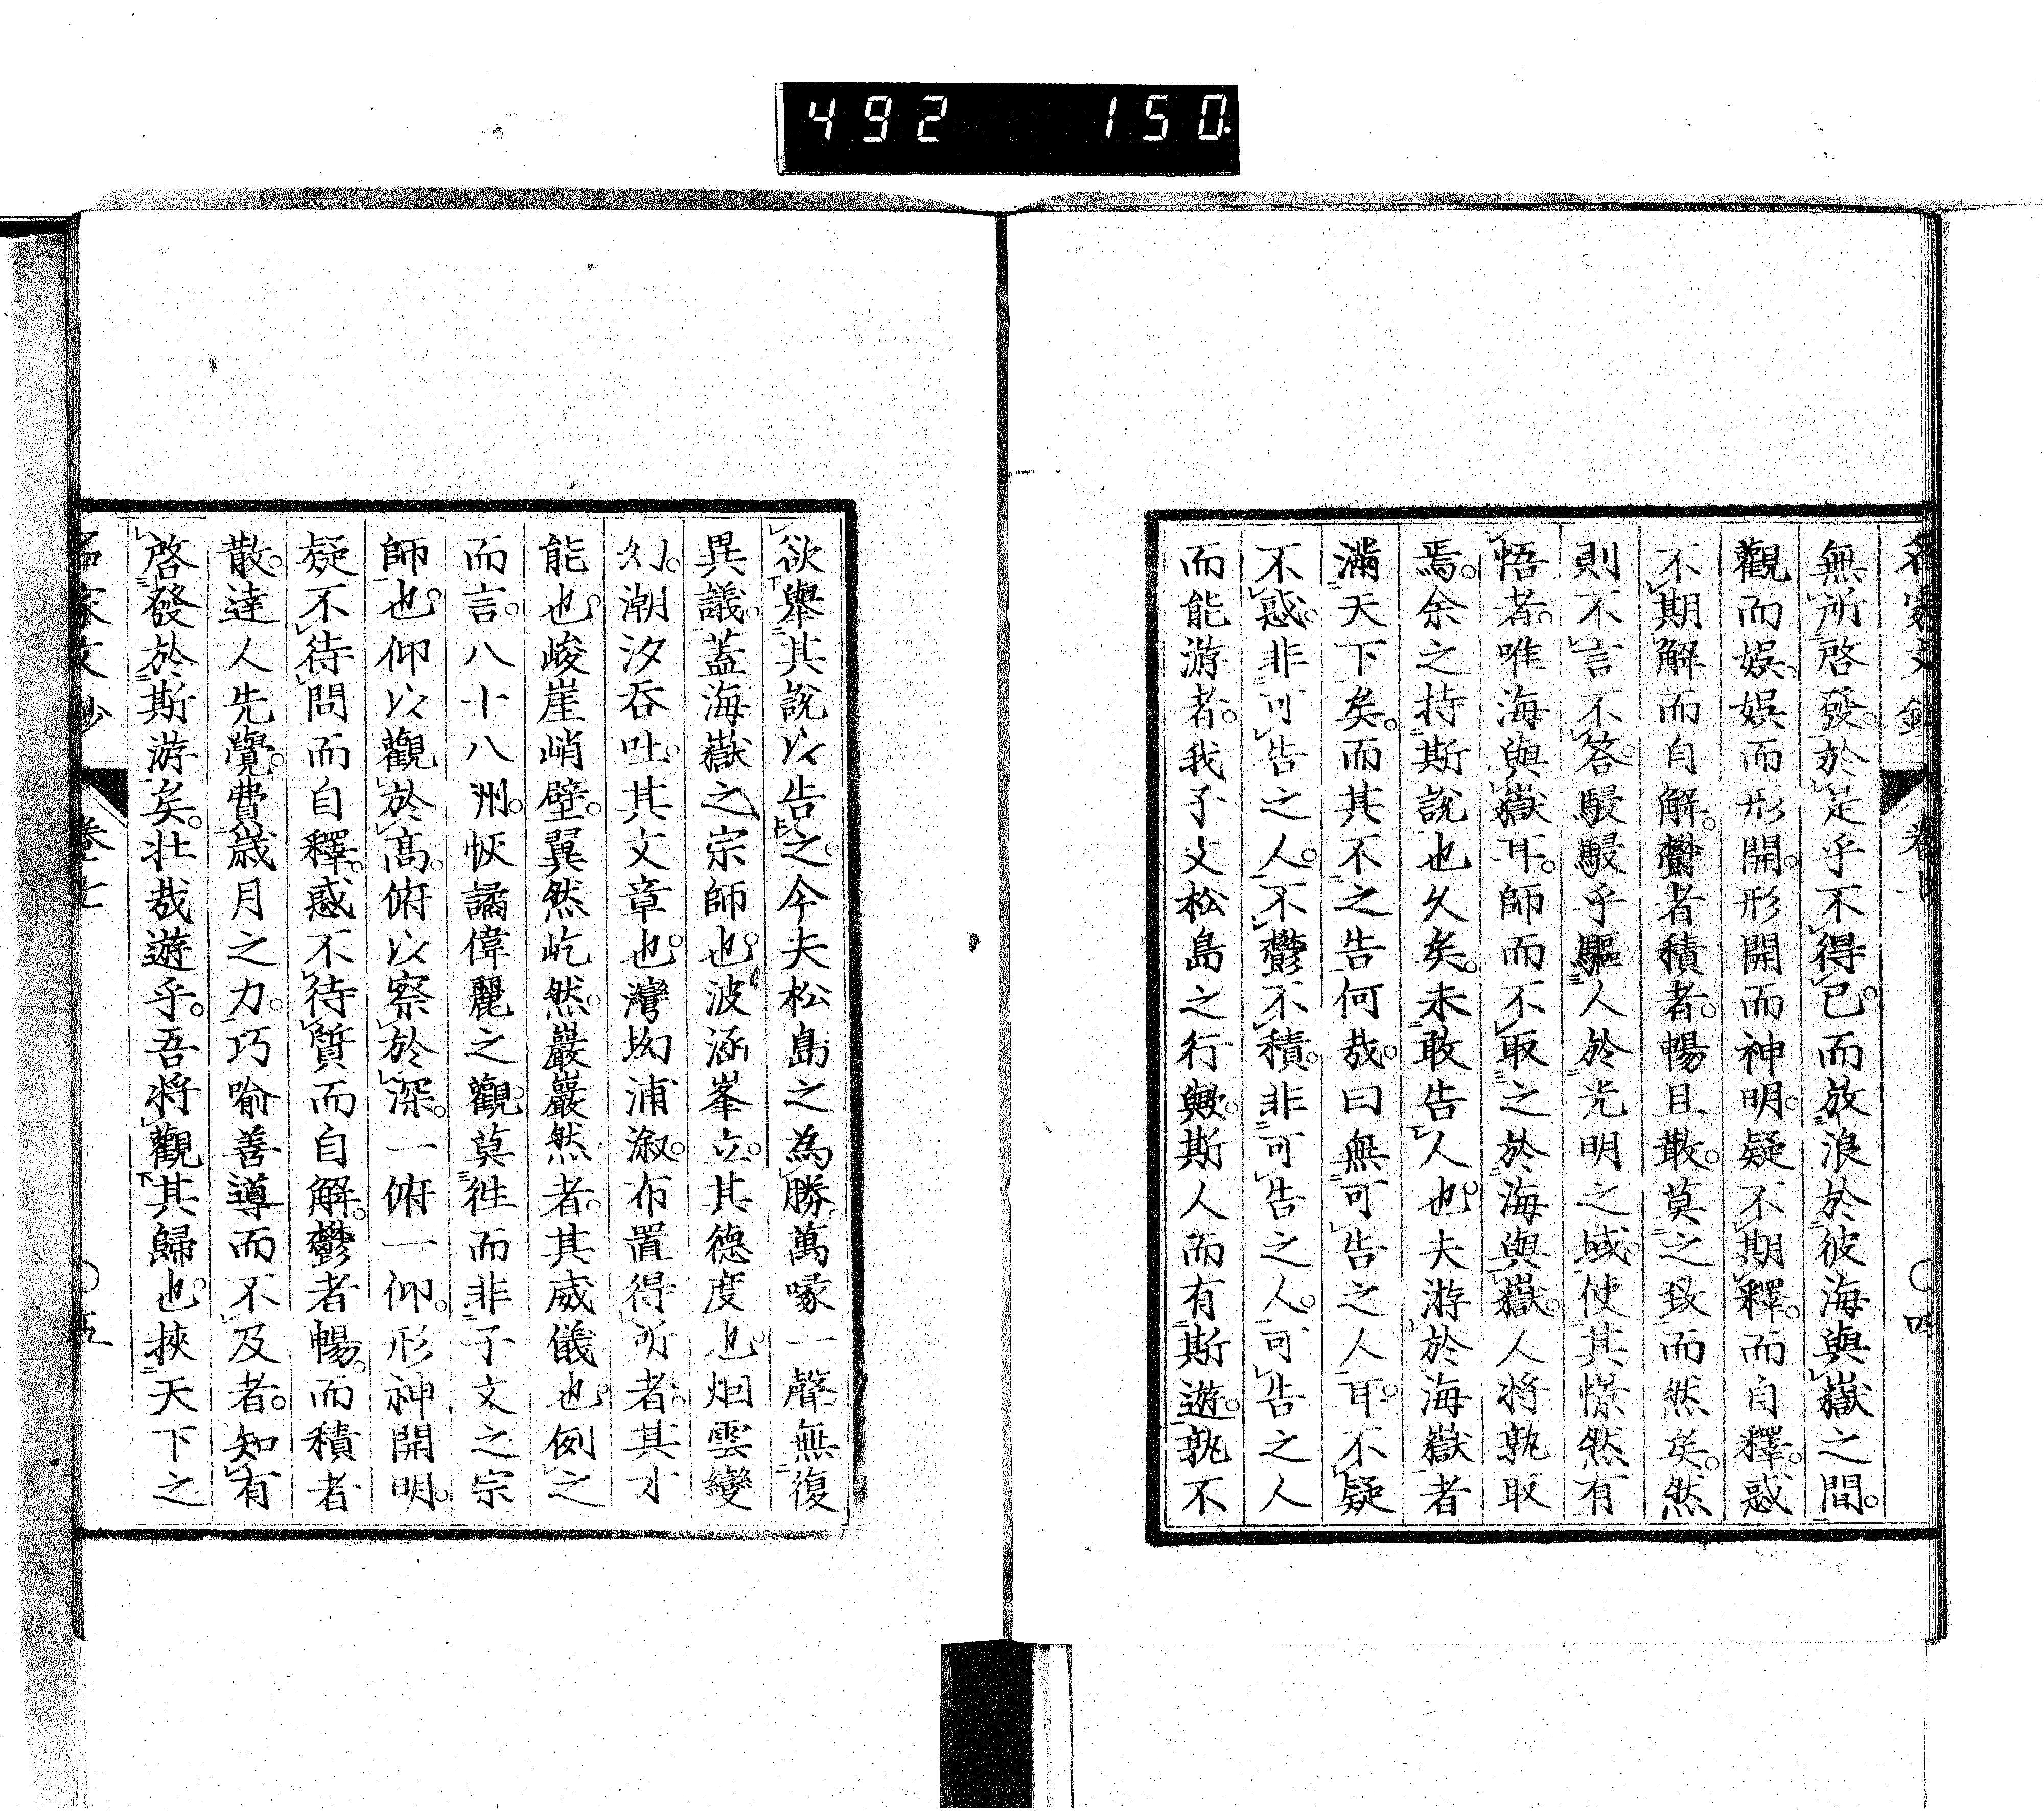 492 150.
無所啓發。於是乎不得已。而放浪於彼海與嶽之間。
觀而娯。娯而形開。形開而神明。疑不期釋。而自釋。惑
不期解而自解。鬱者積者。暢且散。莫之致而然矣。然
則不言不答。駸駸乎驅人於光明之域。使其憬然有
悟者。唯海與嶽耳。師而不取之於海與嶽。人將孰取
焉。余之持斯說也久矣。未敢告人也。夫游於海嶽者
滿天下矣。而其不之告何哉。曰無可告之人耳。不疑
不惑。非可告之人。不鬱不積。非可告之人。可告之人
而能游者。我子文松島之行歟。斯人而有斯遊。孰不
欲舉其說以告之。今夫松島之為勝萬喙一聲無復
異議。蓋海嶽之宗師也。波涵峯立。其德度也。烟雲變
幻。潮汐呑吐。其文章也。灣坳浦漵。布置得所者。其才
能也。峻崖峭壁。翼然屹然。巖巖然者。其威儀也。例之
而言。八十八洲。恢譎偉麗之觀。莫徃而非子文之宗
師也。仰以觀於高。俯以察於深。一俯一仰。形神開明。
疑不待問而自釋。惑不待質而自解。鬱者暢。而積者
散。達人先覺。費歲月之力。巧喻善導而不及者。知有
啓發於斯游矣。壯哉遊乎。吾將觀其歸也。挾天下之